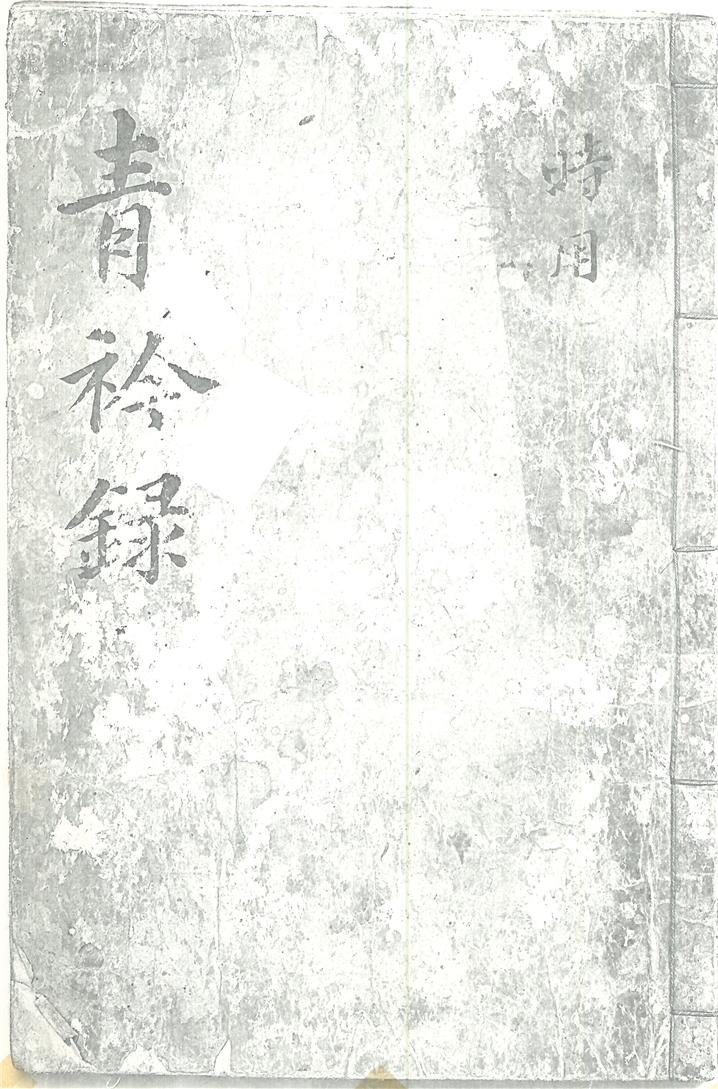 時用
青衿録